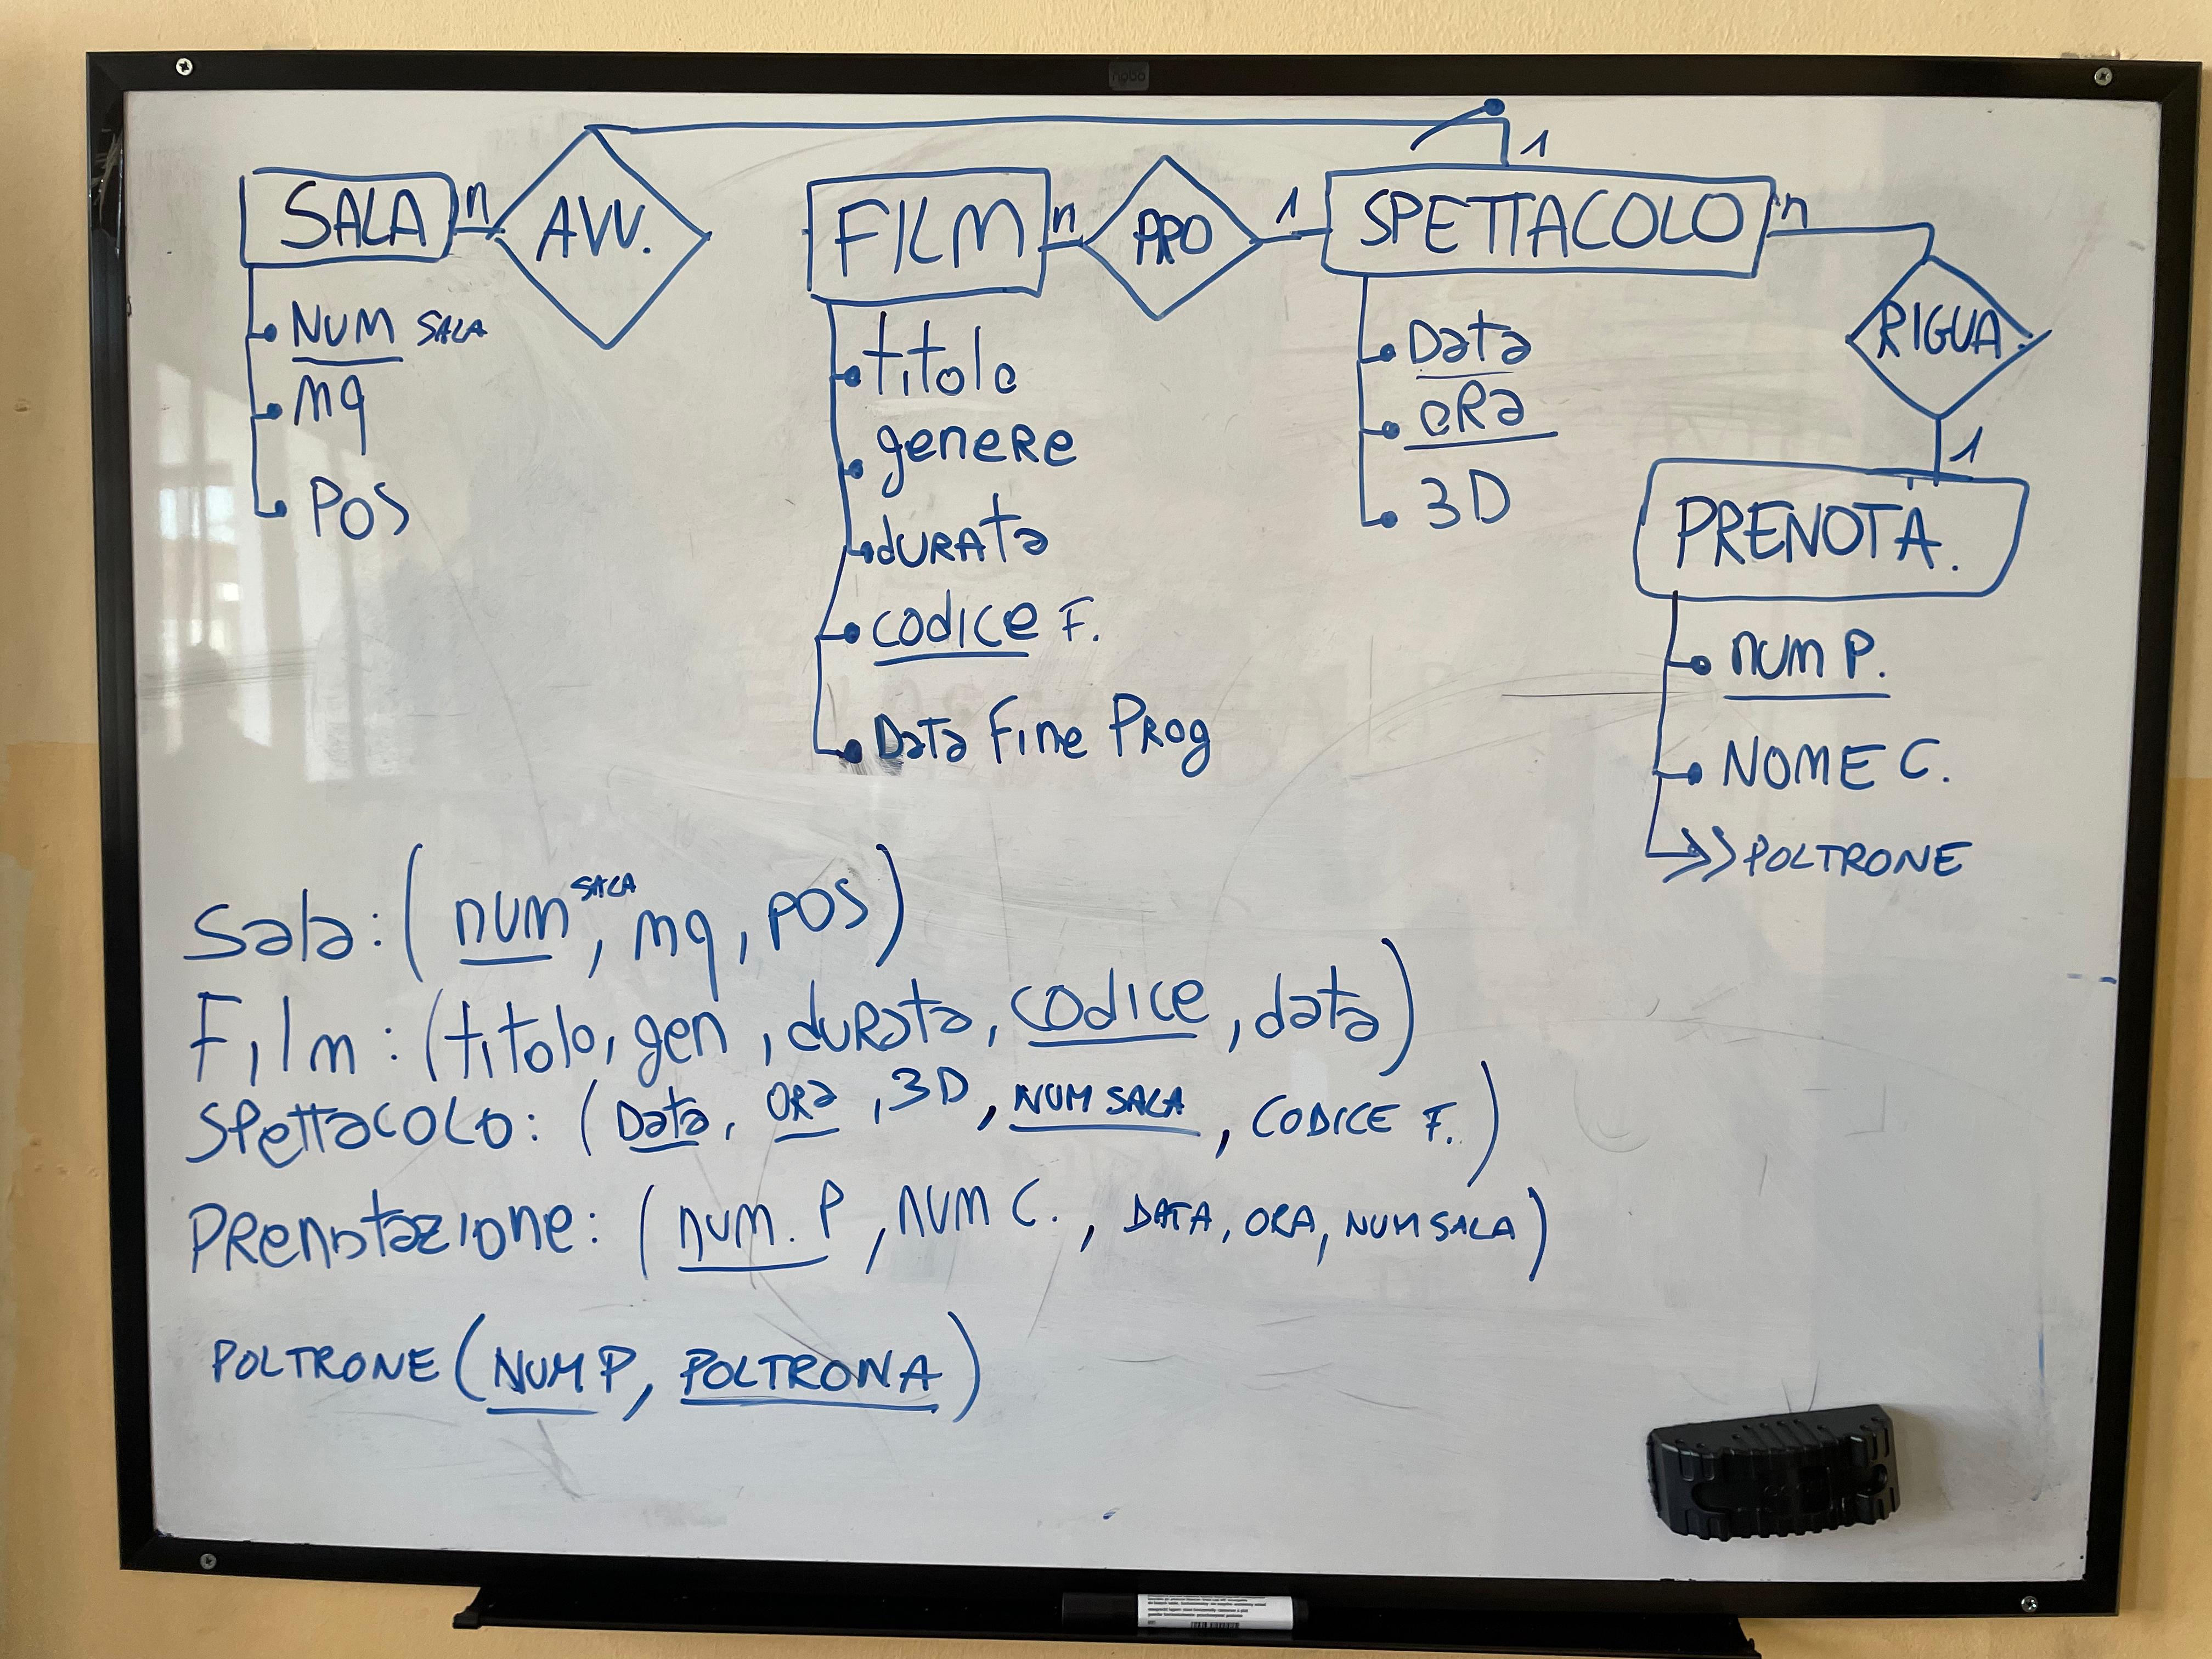 1
SALA n AVV. FILM n PRO 1 SPETTACOLO n
NUM SALA
mq
POS
titolo
genere
durata
codice F.
Data Fine Prog
Data
ora
3D
RIGUA.
1
PRENOTA.
num P.
NOME C.
POLTRONE
Sala: (num SALA, mq, POS)
Film: (titolo, gen, durata, codice, data)
Spettacolo: (Data, ora, 3D, NUM SALA, CODICE F.)
Prenotazione: (num. P, num C., DATA, ORA, NUM SALA)
POLTRONE (NUM P, POLTRONA)